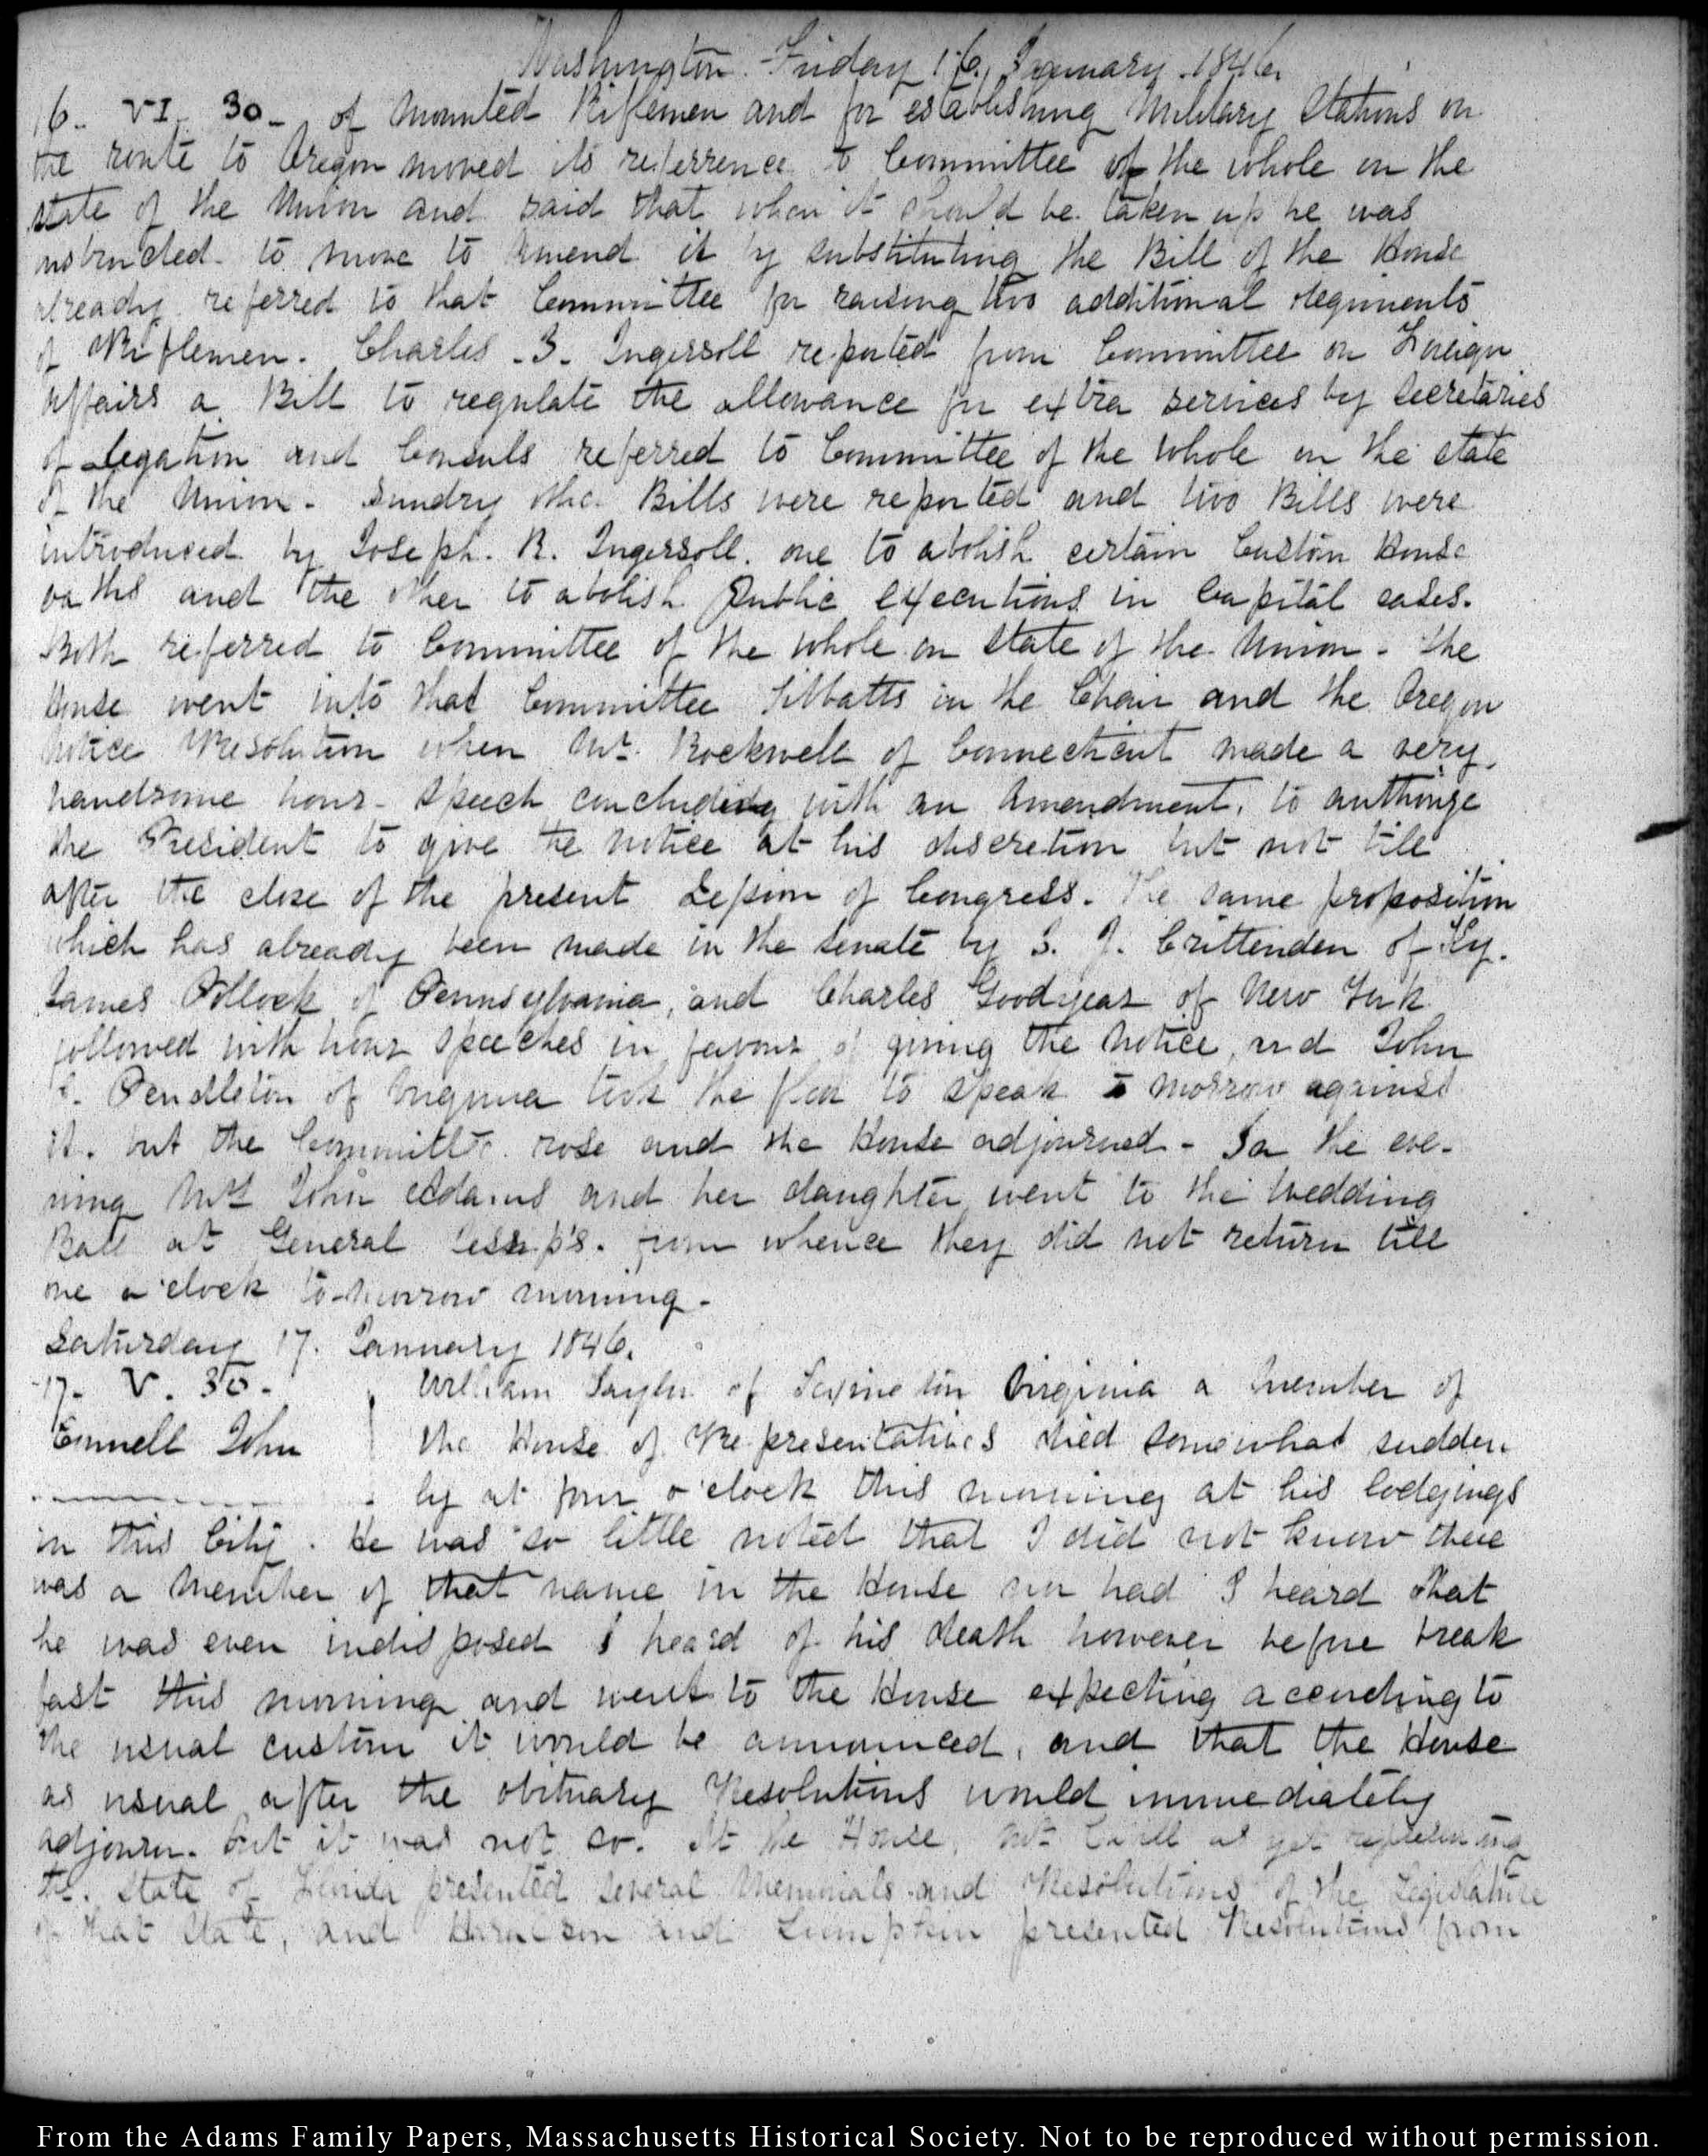 Washington. Friday 16. January 1846.
16. VI. 30. of Mounted Riflemen and for establishing Military Stations on
the route to Oregon moved its referrence to Committee of the whole on the
state of the Union and said that when it should be taken up he was
instructed to move to amend it by substituting the Bill of the House
already referred to that Committee for raising two additional Regiments
of Riflemen. Charles J. Ingersoll reported from Committee on Foreign
Affairs a Bill to regulate the allowance for extra services by Secretaries
of Legation and Consuls referred to Committee of the Whole on the state
of the Union. Sundry other Bills were reported and two Bills were
introduced by Joseph. R. Ingersoll. one to abolish certain Custom House
oaths and the other to abolish Public executions in Capital cases.
Both referred to Committee of the whole on state of the Union. The
House went into that Committee Tibbatts in the Chair and the Oregon
notice Resolution when Mr. Rockwell of Connecticut made a very
handsome hour speech concluding with an Amendment, to authorize
the President to give the notice at his discretion but not till
after the close of the present Session of Congress. The same proposition
which has already been made in the Senate by J. J. Crittenden of Ky.
James Pollock of Pennsylvania, and Charles Goodyear of New York
followed with hour speeches in favour of giving the notice, and John
S. Pendleton of Virginia took the floor to speak to morrow against
it. but the Committee rose and the House adjourned - In the eve-
ning Mrs John Adams and her daughter went to the Wedding
Ball at General Jessup's. from whence they did not return till
one o'clock to-morrow morning.
Saturday 17. January 1846.
17. V. 30. William Taylor of Lexington Virginia a member of
Emnell John the House of Representatives died somewhat sudden
ly at four o'clock this morning at his lodgings
in this City. He was so little noted that I did not know there
was a Member of that name in the House nor had I heard that
he was even indisposed I heard of his death however before break
fast this morning and went to the House expecting according to
the usual custom it would be announced, and that the House
as usual after the obituary Resolutions would immediately
adjourn. but it was not so. At the House, Mr as yet representing
the State of Florida presented several Memorials and Resolutions of the Legislature
of that State, and Haralson and Lumpkin presented Resolutions from
From the Adams Family Papers, Massachusetts Historical Society. Not to be reproduced without permission.